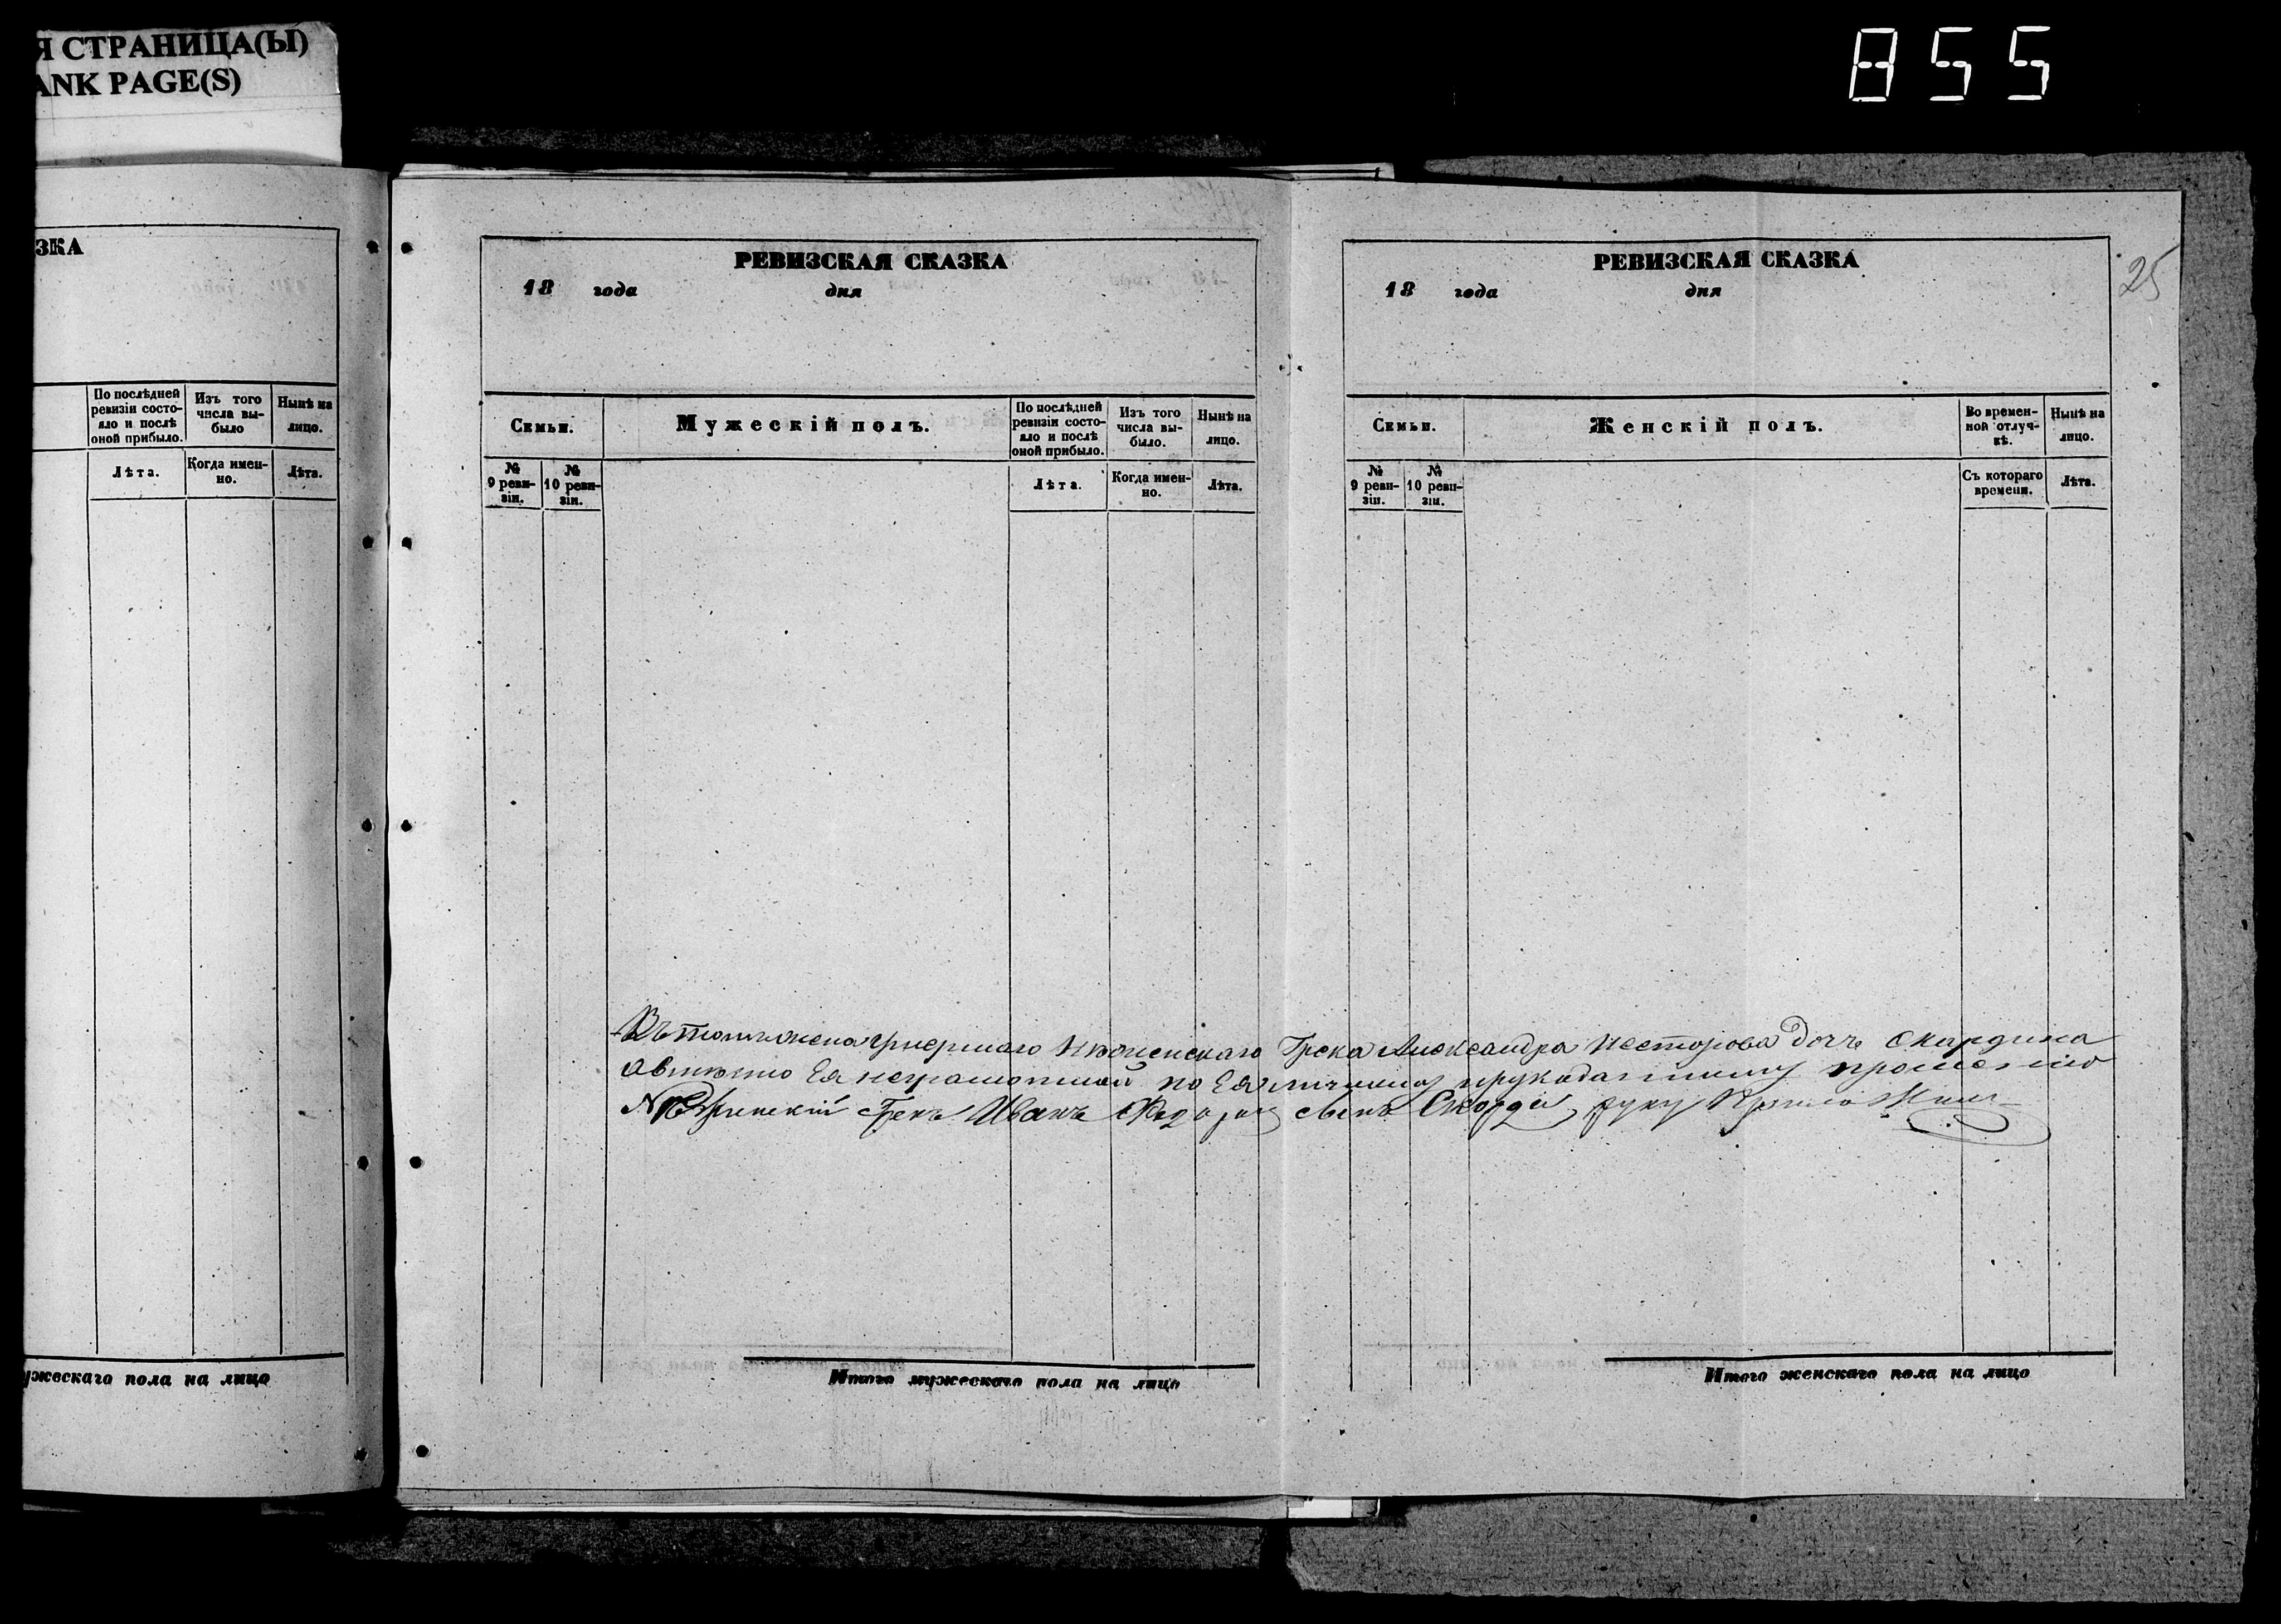 Я СТРАНИЦА(Ы)
ANK PAGE(S)
855
ЗКА
По послѣдней ревизіи состояло и послѣ оной прибыло.
Изъ того числа выбыло
Нынѣ на лицо.
Лѣта.
Когда именно.
Лѣта.
ужескаго пола на лицо
РЕВИЗСКАЯ СКАЗКА
18 года дня
Семьи.
Мужескій полъ.
По послѣдней ревизіи состояло и послѣ оной прибыло.
Изъ того числа выбыло.
Нынѣ на лицо.
№ 9 ревизіи.
№ 10 ревизіи.
Лѣта.
Когда именно.
Лѣта.
РЕВИЗСКАЯ СКАЗКА
18 года дня
25
Семьи.
Женскій полъ.
Во временной отлучкѣ.
Нынѣ на лицо.
№ 9 ревизіи.
№ 10 ревизіи.
Съ котораго времени.
Лѣта.
Къ той жена умершаго Нѣжинскаго Грека Александра Несторова дочь Скордина
а вмѣсто Ея неграмотной по Ея личному и рукоданному прошенію
Нѣжинскій Грекъ Иванъ Федоровъ сынъ Скорда руку
Итого мужескаго пола на лицо
Итого женскаго пола на лицо